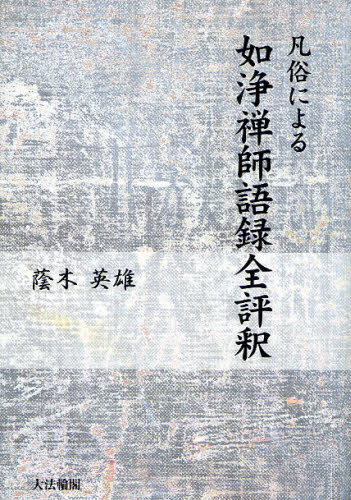 凡俗による
如浄禅師語録全評釈
蔭木 英雄
大法輪閣